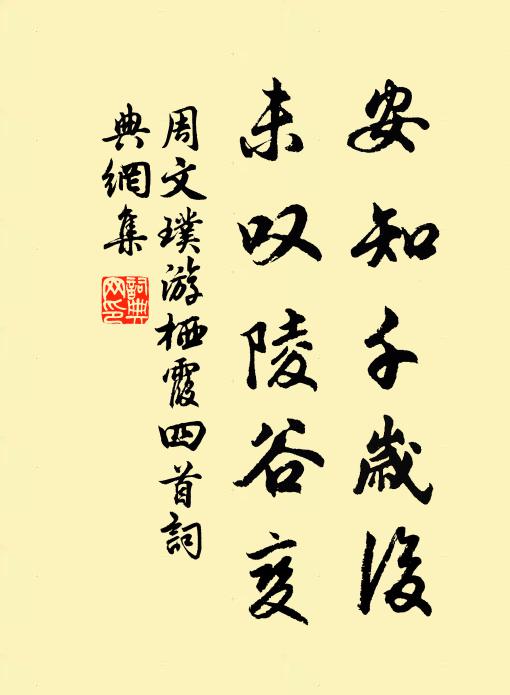 安知千歲後
未叹陵谷变
周文璞游栖霞四首詞
典網集
詞典网印